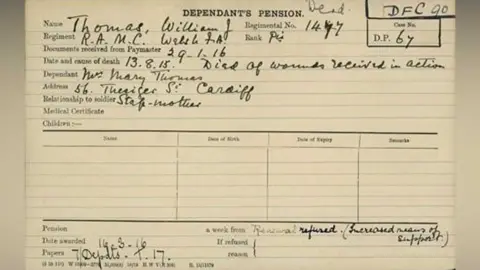 Dead.
DEPENDANT'S PENSION.
DFC 90
Name Thomas, William J Regimental No. 1447
Case No.
Regiment R.A.M.C. Welsh F.A. Rank Pte
D.P. 67
Documents received from Paymaster 29-1-16
Date and cause of death 13.8.15. Died of wounds received in action
Dependant Mrs Mary Thomas
Address 56. St. Cardiff
Relationship to soldier Step-mother
Medical Certificate
Children:—
Names Date of Birth Date of Expiry Remarks
Pension a week from Renewal refused. (Increased means of support.)
Date awarded 16-3-16 If refused
Papers reason